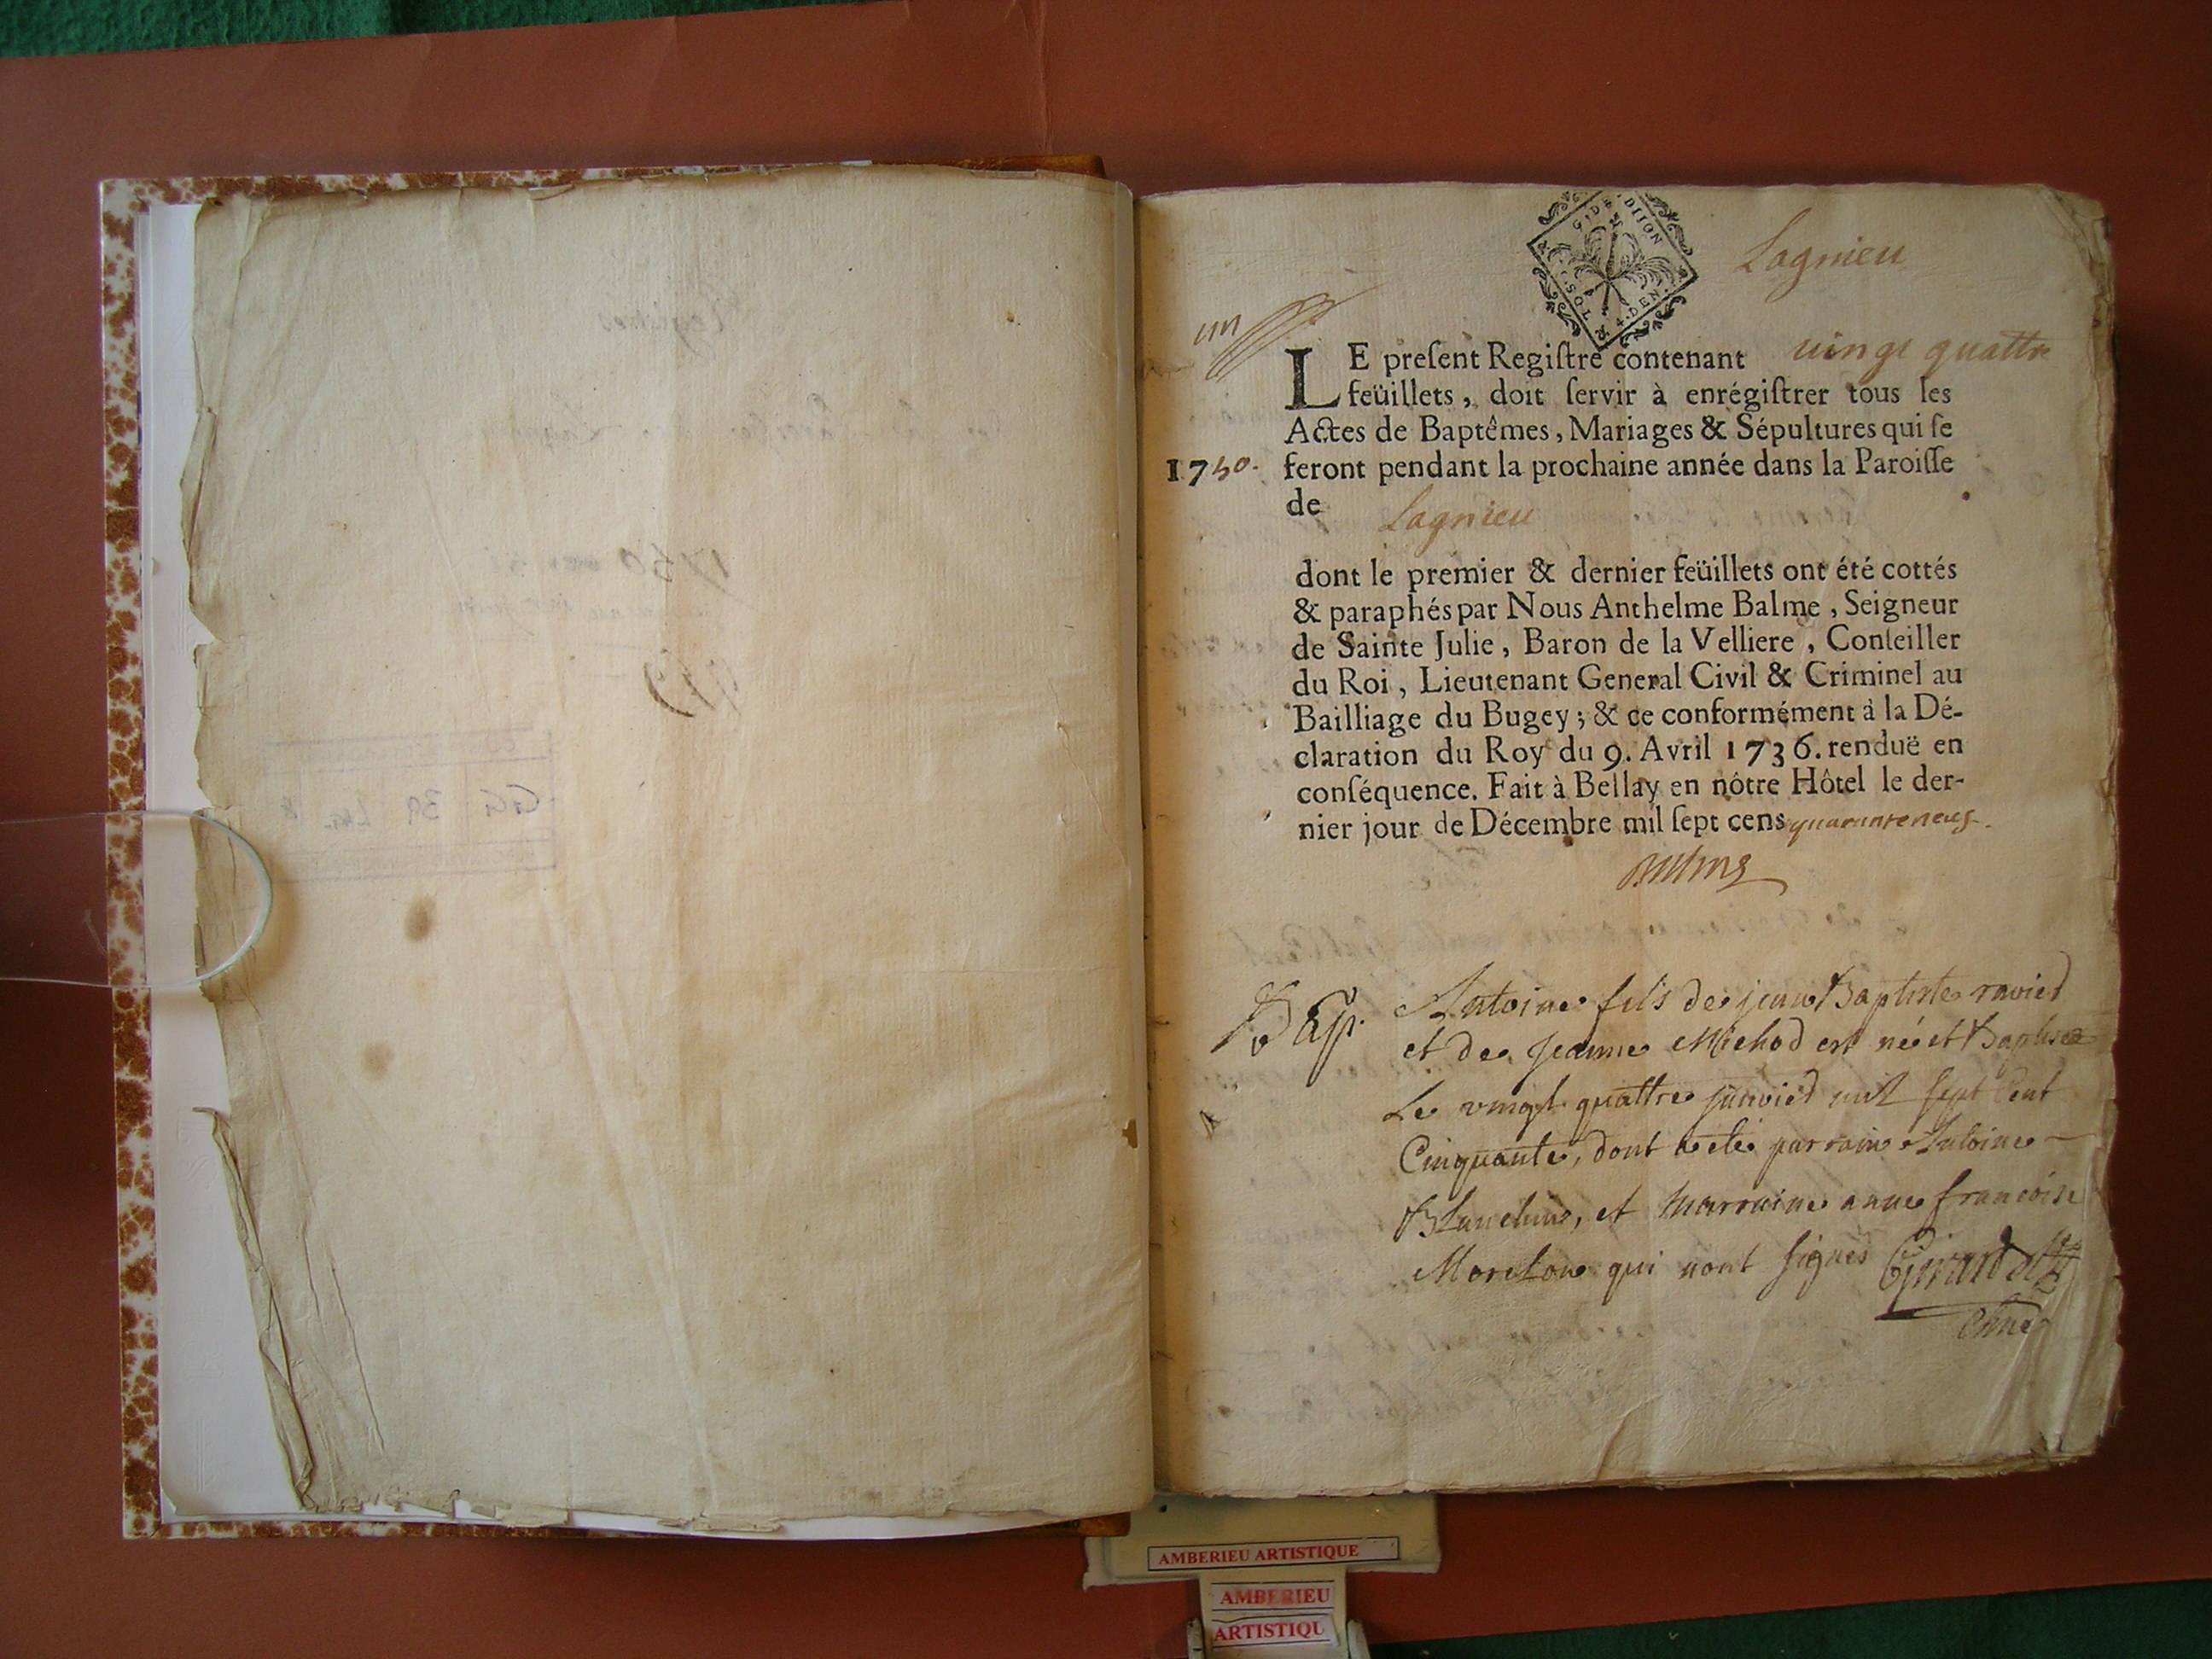 G. DE DIJON
SOL
4. DEN.
Lagnieu
un
LE preſent Regiſtre contenant vingt quattre
feüillets, doit ſervir à enrégiſtrer tous les
Actes de Baptêmes, Mariages & Sépultures qui ſe
1750. feront pendant la prochaine année dans la Paroiſſe
de Lagnieu
dont le premier & dernier feüillets ont été cottés
& paraphés par Nous Anthelme Balme, Seigneur
de Sainte Julie, Baron de la Velliere, Conſeiller
du Roi, Lieutenant General Civil & Criminel au
Bailliage du Bugey; & ce conformément à la Dé-
claration du Roy du 9. Avril 1736. renduë en
conſéquence. Fait à Bellay en nôtre Hôtel le der-
nier jour de Décembre mil ſept cens quaranteneuf.
Balme
Bap. Antoine fils de jean Baptiste ravied
et de jeanne Michod est né et Baptisé
Le vingt quattre janvied mil sept Cent
Cinquante, dont a eté parrain Antoine
Blanchin, et marraine anne francoise
Morelon qui nont signés Girard
AMBERIEU ARTISTIQUE
AMBERIEU
ARTISTIQU